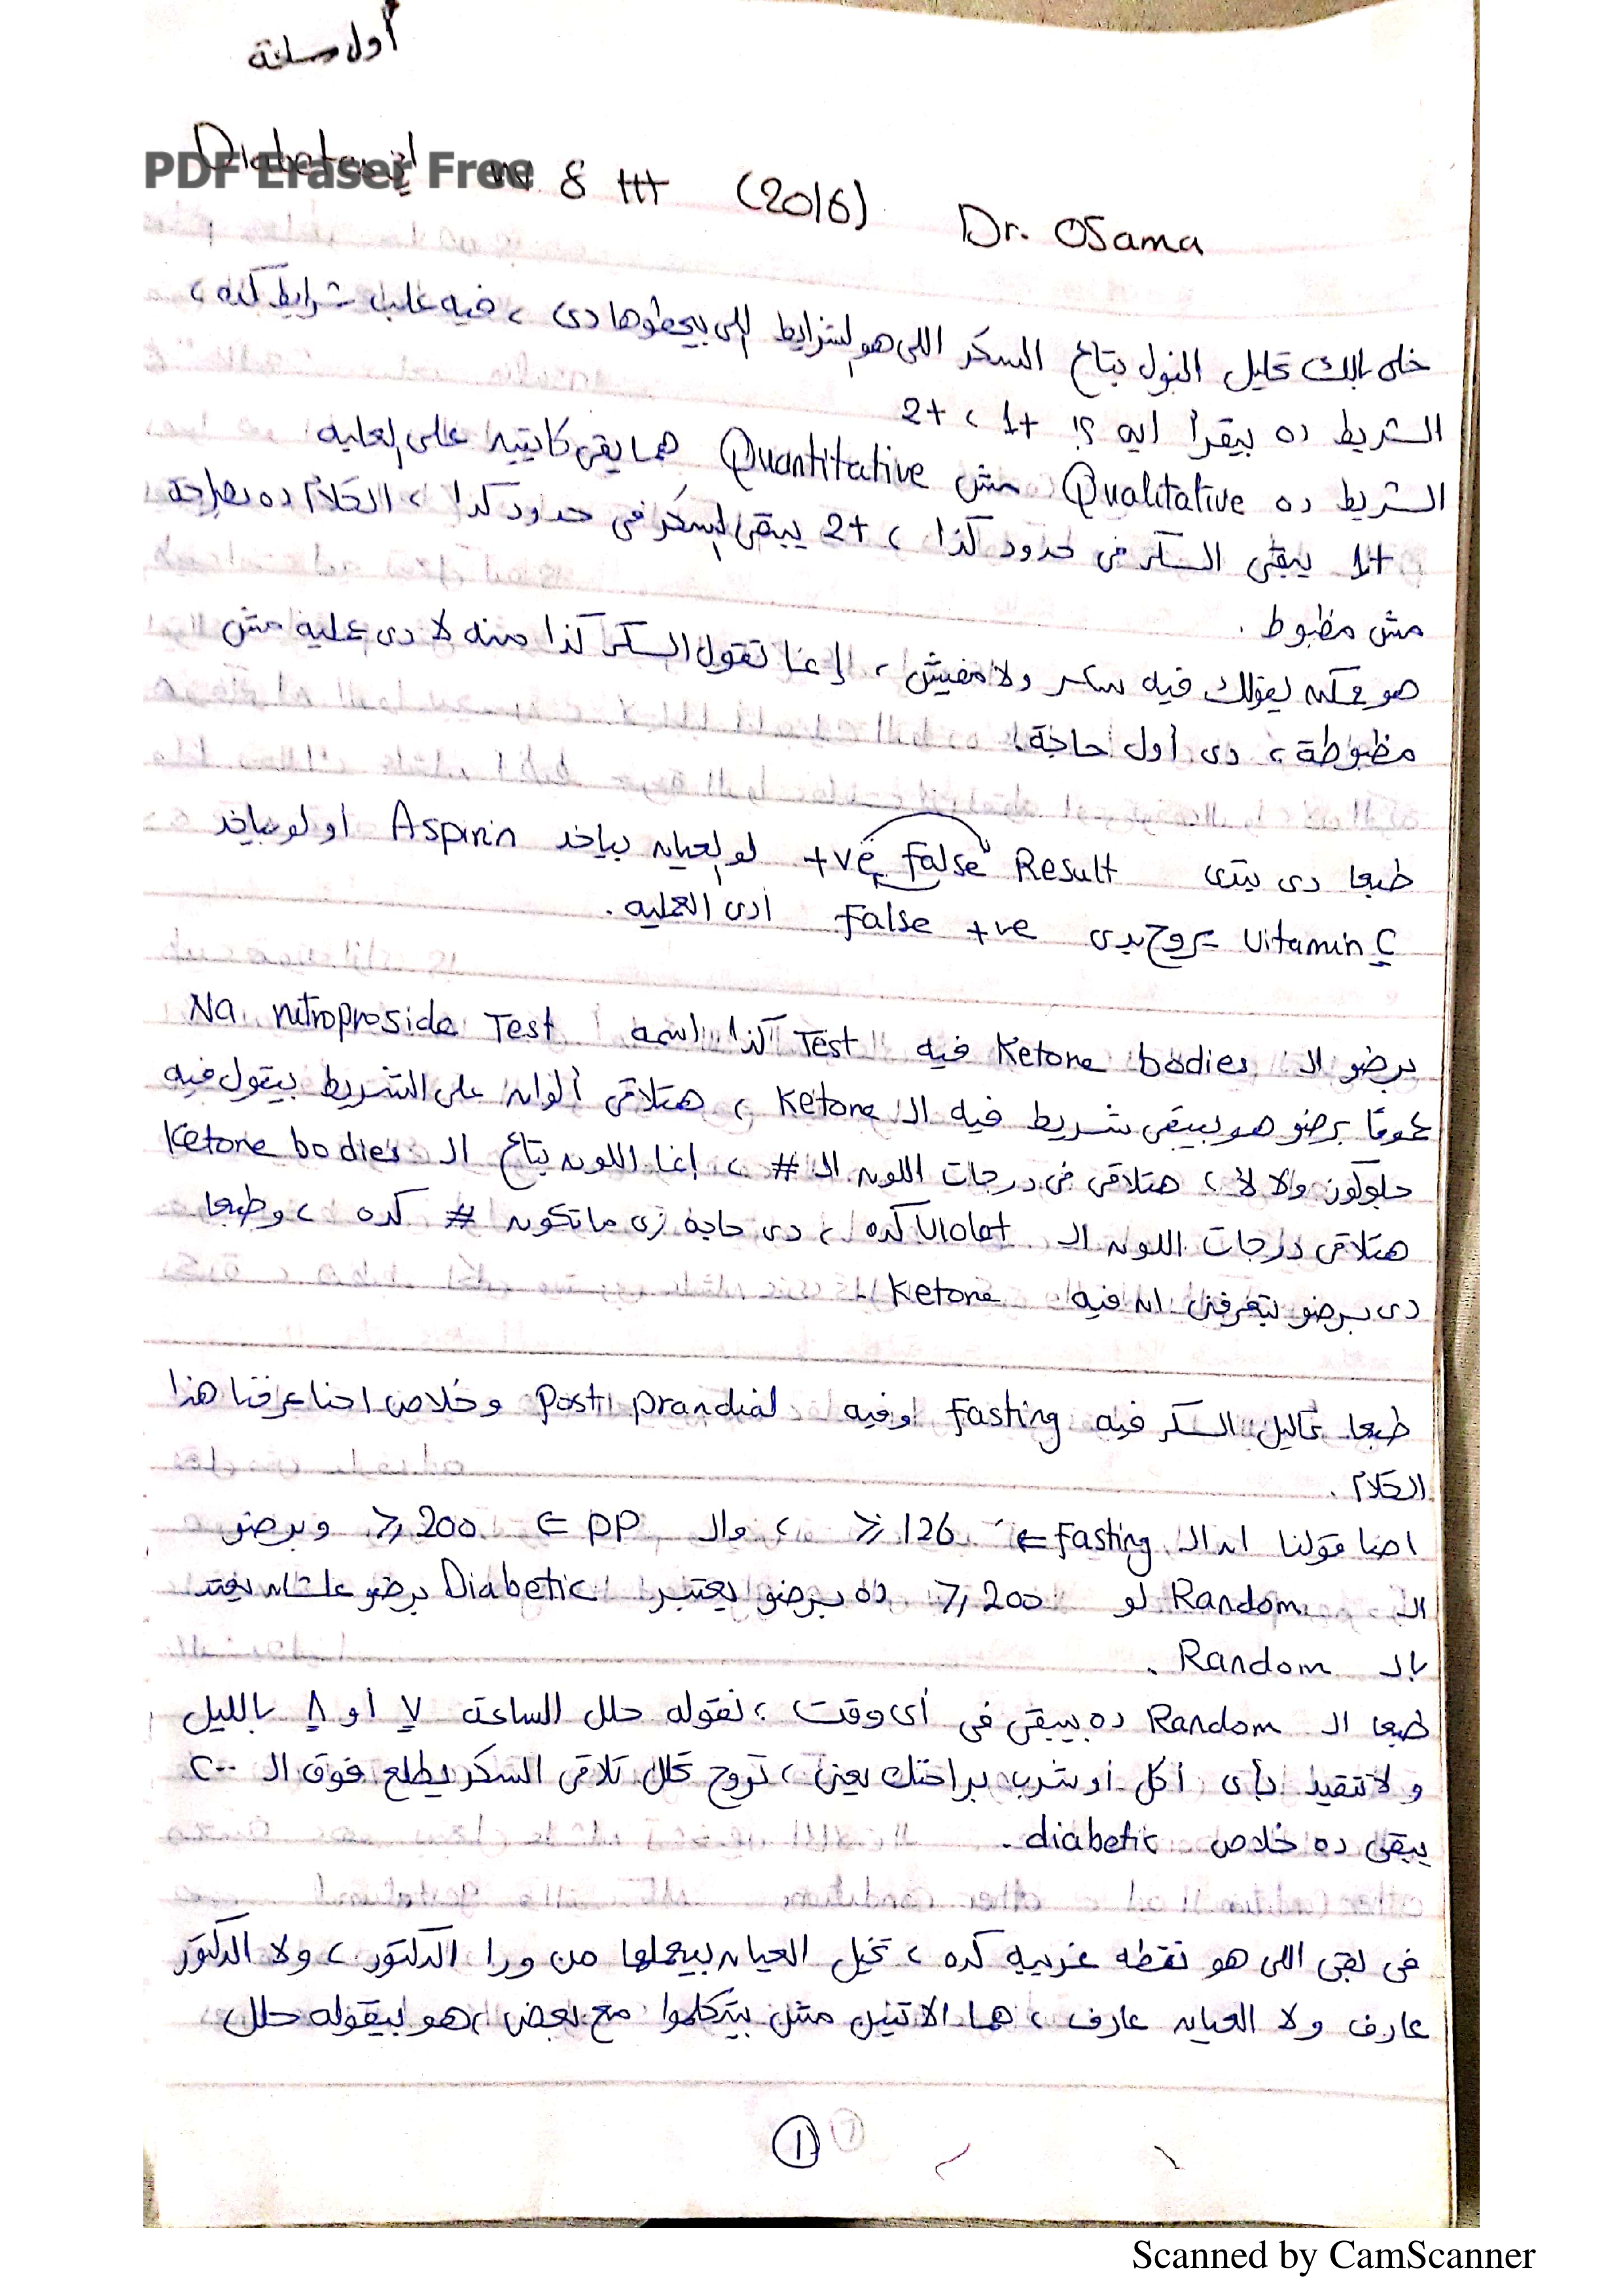 أول سلخة
Diabetes
PDF Eraser Free
8 ttt (2016) Dr. OSama
خلى بالك تحليل البول بتاع السكر اللى هو الشرايط اللى بيحطوها دى ، فيه علب شرايط كده ،
الشريط ده بيقرأ ايه ؟! 1+ ، 2+
الشريط ده Qualitative مش Quantitative هما يقى كاتبين على العلبه
1+ يبقى السكر فى حدود كذا ، 2+ يبقى السكر فى حدود كذا ، الكلام ده بصراحة
مش مظبوط .
هو ممكن يقولك فيه سكر ولا مفيش ، إنما تقول السكر كذا منه لا دى عمليه مش
مظبوطة ، دى أول حاجة .
طبعا دى بتدى +ve False Result لو العيان بياخد Aspirin او لو بياخد
Vitamin C يروح يدى False +ve أدى العمليه .
برضو الـ Ketone bodies فيه Test كذا اسمه Na nitroproside Test
عموما برضو هو بيبقى شريط فيه الـ Ketone ، هتلاقى ألوان على الشريط بيقول فيه
جلوكوز والا لأ ، هتلاقى فى درجات اللون الـ # ، إنما اللون بتاع الـ Ketone bodies
هتلاقى درجات اللون الـ Violet كده ، دى حاجه زى ماتكون # كده ، وطبعا
دى برضو بتعرفنى ان فيه Ketone .
طبعا تحاليل السكر فيه Fasting وفيه Post prandial وخلاص احنا عرفنا هذا
الكلام .
احنا قولنا ان الـ Fasting ⇐ ≥ 126 ، والـ PP ⇐ ≥ 200 وبرضو
الـ Random لو ≥ 200 ده برضو يعتبر Diabetic برضو علشان يعتد
بالـ Random .
طبعا الـ Random ده بيبقى فى أى وقت ، نقوله حلل الساعة ٧ أو ٨ بالليل
ولا تتقيد بأى أكل أو شرب براحتك يعنى ، تروح تحلل تلاقى السكر يطلع فوق الـ ٢٠٠
يبقى ده خلاص diabetic .
فى بقى اللى هو نقطه غريبه كده ، تخيل العيان بيعملها من ورا الدكتور ، ولا الدكتور
عارف ولا العيان عارف ، هما الاتنين مش بيتكلموا مع بعض ، هو بيقوله حلل
1
Scanned by CamScanner